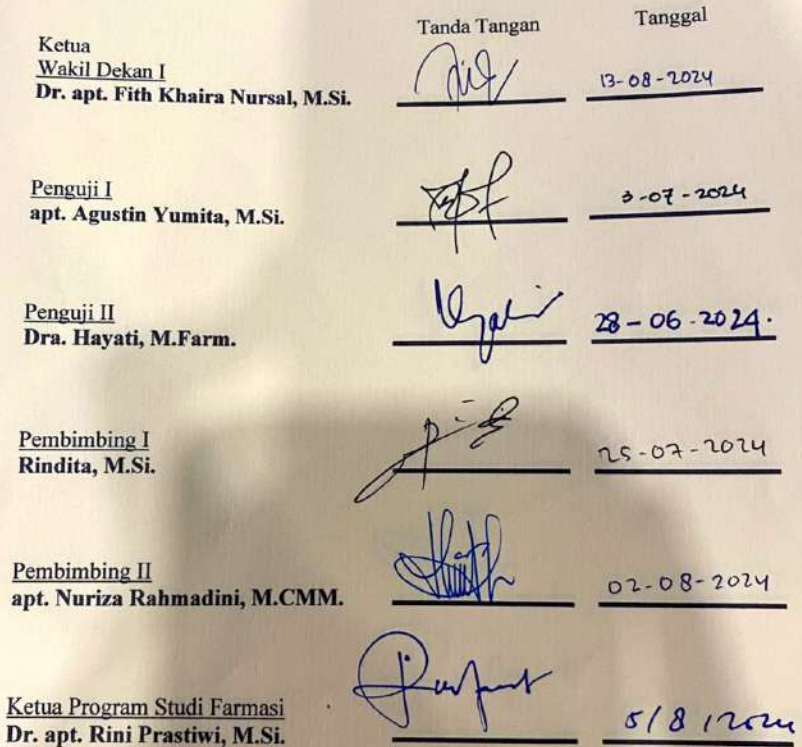 Tanda Tangan Tanggal
Ketua
Wakil Dekan I
Dr. apt. Fith Khaira Nursal, M.Si. 13-08-2024
Penguji I
apt. Agustin Yumita, M.Si. 3-07-2024
Penguji II
Dra. Hayati, M.Farm. 28-06-2024.
Pembimbing I
Rindita, M.Si. 25-07-2024
Pembimbing II
apt. Nuriza Rahmadini, M.CMM. 02-08-2024
Ketua Program Studi Farmasi
Dr. apt. Rini Prastiwi, M.Si. 5/8/2024